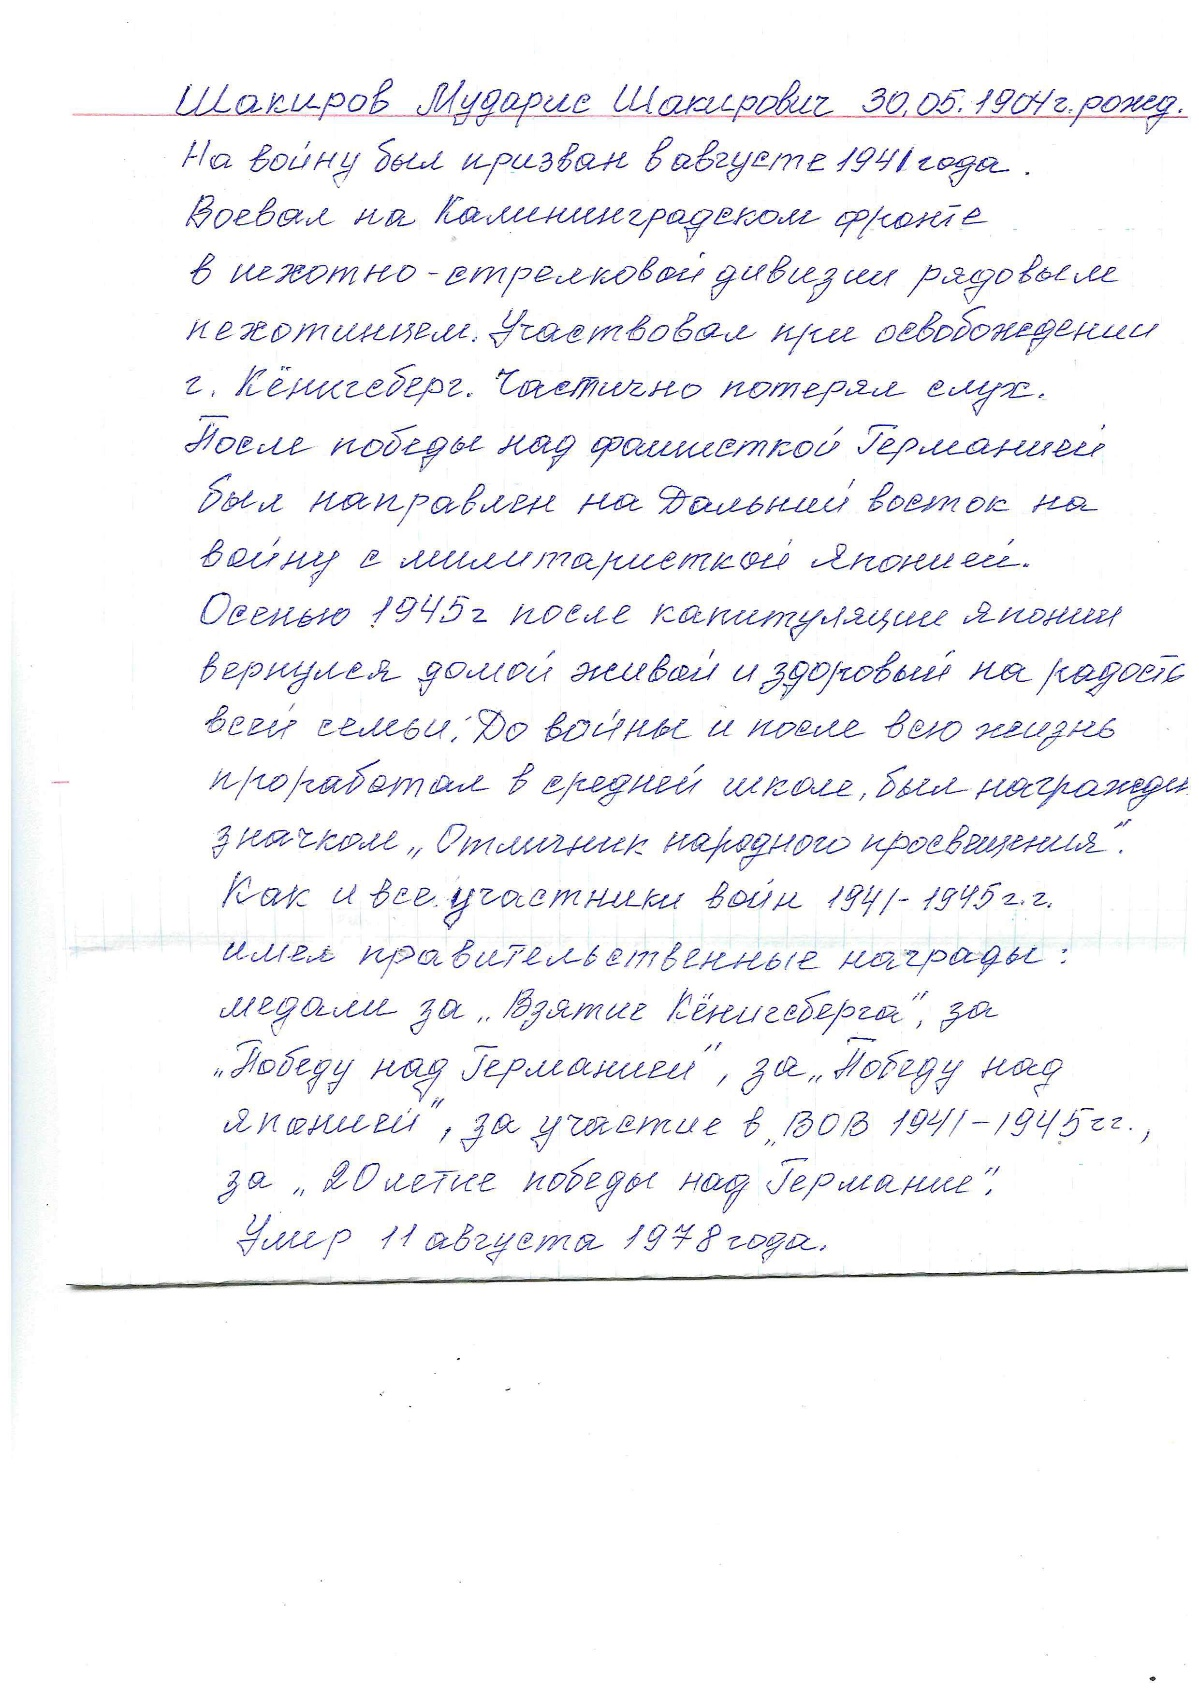 Шакиров Мударис Шакирович 30.05.1904г. рожд.
На войну был призван в августе 1941 года.
Воевал на Калининградском фронте
в пехотно-стрелковой дивизии рядовым
пехотинцем. Участвовал при освобождении
г. Кёнигсберг. Частично потерял слух.
После победы над фашисткой Германией
был направлен на Дальний восток на
войну с милитаристкой Японией.
Осенью 1945г после капитуляции Японии
вернулся домой живой и здоровый на радость
всей семьи. До войны и после всю жизнь
проработал в средней школе, был награжден
значком „Отличник народного просвещения".
Как и все участники войн 1941-1945г.г.
имел правительственные награды:
медали за „Взятие Кёнигсберга", за
„Победу над Германией", за „Победу над
Японией", за участие в „ВОВ 1941-1945гг.,
за „20 летие победы над Германие".
Умер 11 августа 1978 года.